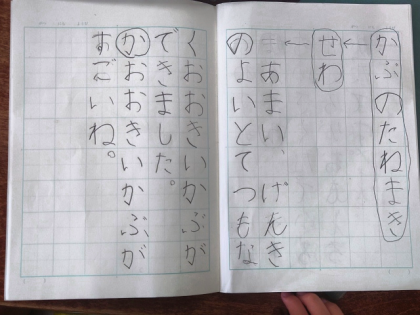 かぶのたねまき
せわ
あまい、げんき
のよいとてつもな
くおおきいかぶが
できました。
かおおきいかぶが
すごいね。